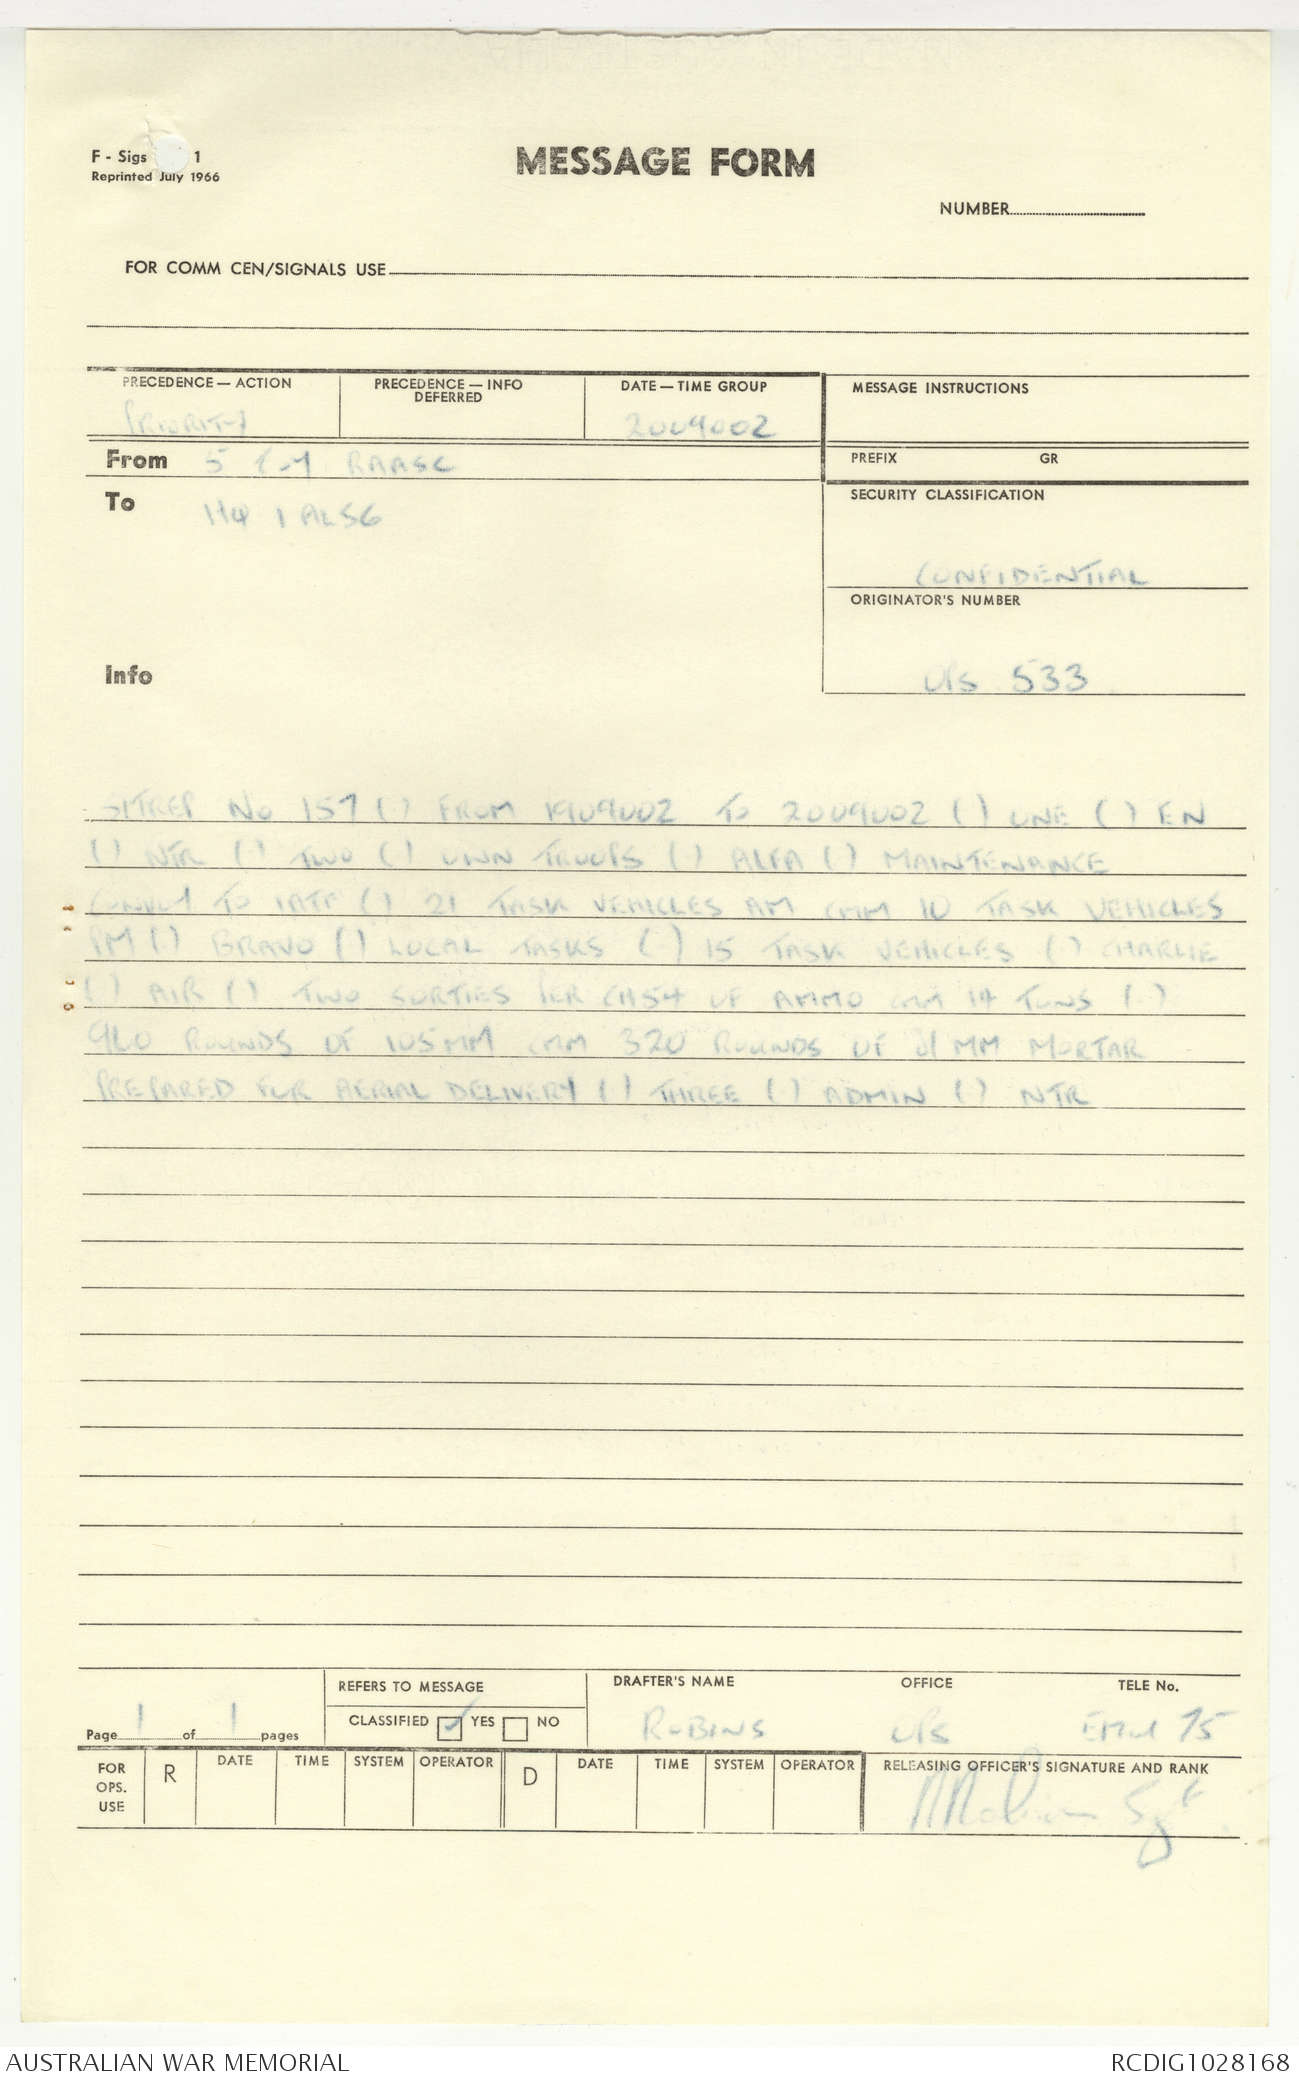 F - Sigs 1
Reprinted July 1966
MESSAGE FORM
NUMBER
FOR COMM CEN/SIGNALS USE
PRECEDENCE — ACTION PRECEDENCE — INFO DATE — TIME GROUP MESSAGE INSTRUCTIONS
DEFERRED
PRIORITY 200900Z
From 5 COY RAASC PREFIX GR
To HQ 1 ALSG SECURITY CLASSIFICATION
CONFIDENTIAL
ORIGINATOR'S NUMBER
Info OPS 533
SITREP No 157 (.) FROM 190900Z TO 200900Z (.) ONE (.) EN
(.) NTR (.) TWO (.) OWN TROOPS (.) ALFA (.) MAINTENANCE
CONVOY TO 1ATF (.) 21 TASK VEHICLES AM CMM 10 TASK VEHICLES
PM (.) BRAVO (.) LOCAL TASKS (.) 15 TASK VEHICLES (.) CHARLIE
(.) AIR (.) TWO SORTIES PER CH54 OF AMMO CMM 14 TONS (.)
960 ROUNDS OF 105MM CMM 320 ROUNDS OF 81 MM MORTAR
PREPARED FOR AERIAL DELIVERY (.) THREE (.) ADMIN (.) NTR
REFERS TO MESSAGE DRAFTER'S NAME OFFICE TELE No.
Page 1 of 1 pages CLASSIFIED YES NO ROBINS OPS EMU 75
FOR OPS. USE R DATE TIME SYSTEM OPERATOR D DATE TIME SYSTEM OPERATOR RELEASING OFFICER'S SIGNATURE AND RANK
Sgt
AUSTRALIAN WAR MEMORIAL RCDIG1028168